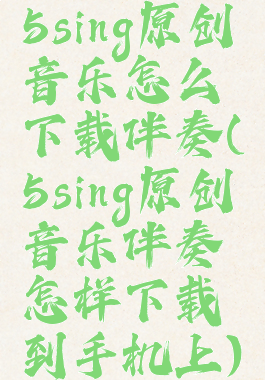 5sing原创
音乐怎么
下载伴奏(
5sing原创
音乐伴奏
怎样下载
到手机上)